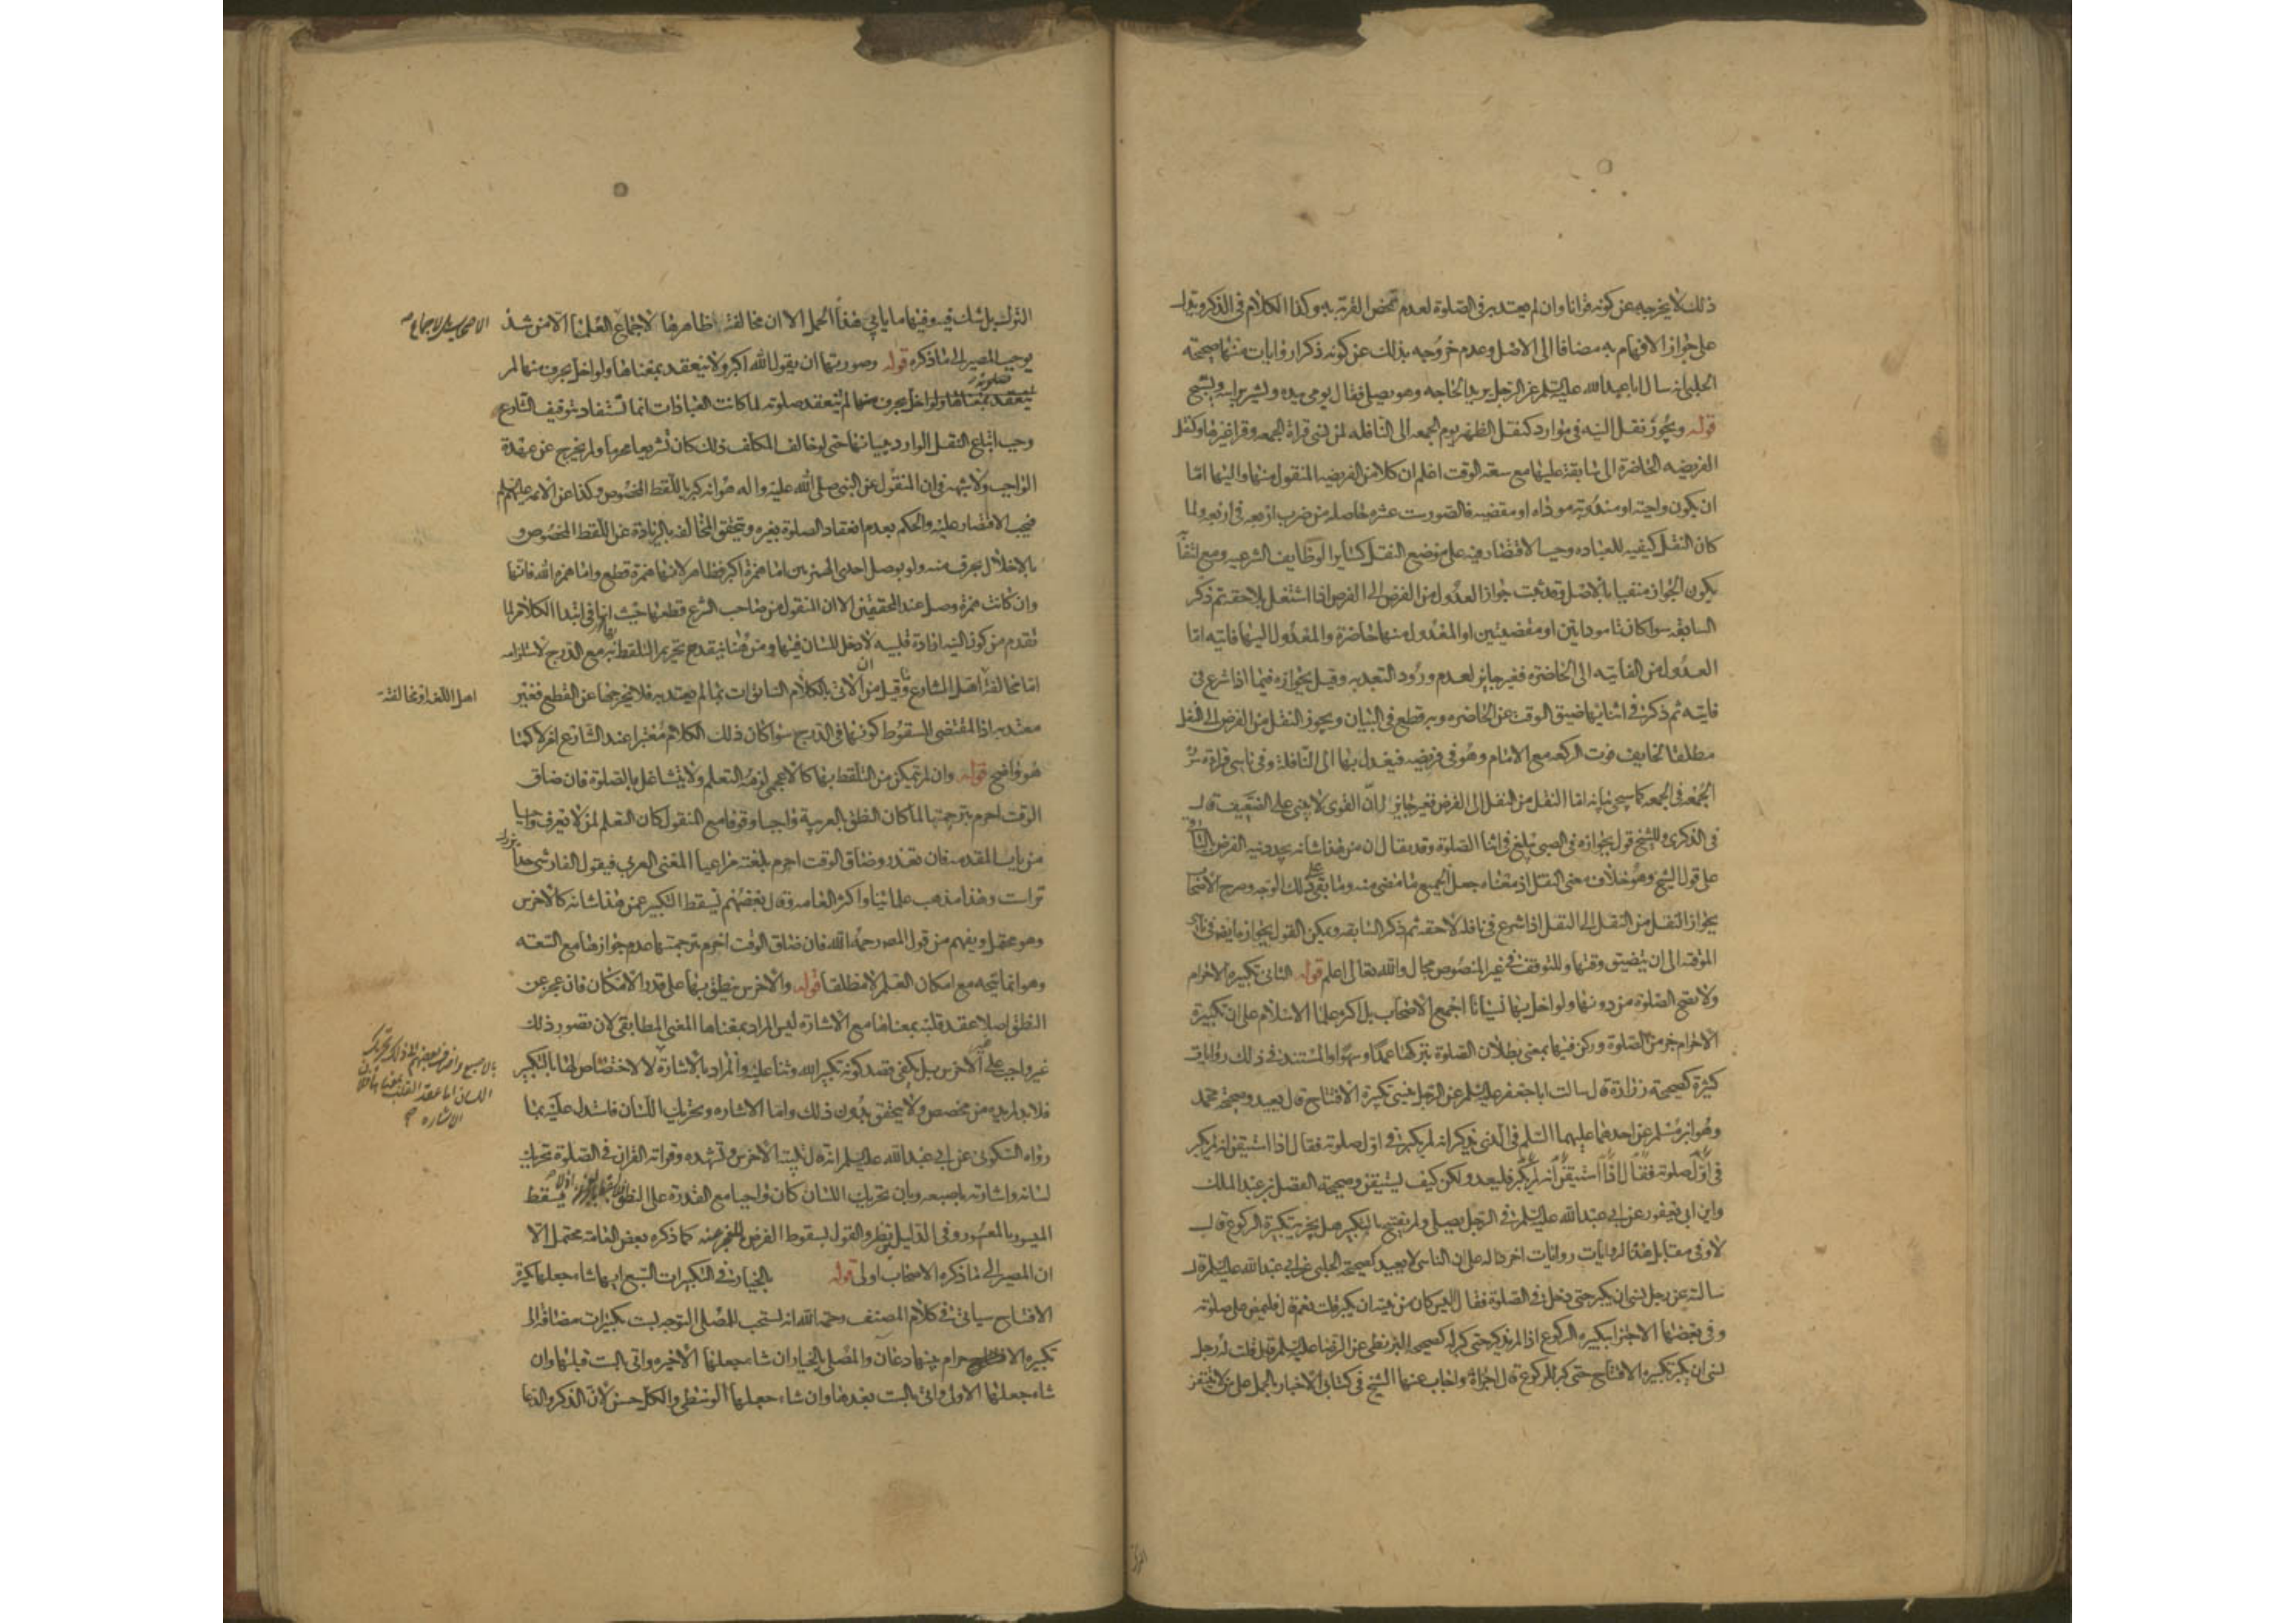 ذلك لا يخرجه عن كونه قرانا وان لم يعتد به في الصلوة لعدم تمحض القربة به وكذا الكلام في الذكر ويدل
على جواز الافهام به مضافا الى الاصل وعدم خروجه بذلك عن كونه ذكرا روايات منها صحيحة
الحلبي انه سال ابا عبد الله عليه السلم عن الرجل يريد الحاجه وهو يصلي فقال يومي بيده ويشير براسه ويسبح
قوله ويجوز نقل النيه في موارد كنقل الظهر يوم الجمعه الى النافله لمن نسي قراة الجمعه وقرا غيرها وكنقل
الفريضه الحاضرة الى سابقة عليها مع سعة الوقت اعلم ان كلا من الفريضه المنقول منها واليها اما
ان يكون واجبة او مندوبة موداه او مقضيه فالصور ست عشره حاصله من ضرب اربعه في اربعه ولما
كان النقل كيفيه للعباده وجب الاقتصار فيه على موضع النقل كساير الوظايف الشرعيه ومع انتفا
يكون الجواز منفيا بالاصل وقد ثبت جواز العدول من الفرض الى الفرض اذا اشتغل بلاحقه ثم ذكر
السابقه سوا كانتا موداتين او مقضيتين او المعدول منها حاضرة والمعدول اليها فايته اما
العدول من الفايته الى الحاضره فغير جايز لعدم ورود التعبد به وقيل بجوازه فيما اذا شرع في
فايته ثم ذكر في اثنايها ضيق الوقت عن الحاضره وبه قطع في البيان ويجوز النقل من الفرض الى النفل
مطلقا لخايف فوت الركعه مع الامام وهو في فريضه فيعدل بها الى النافلة وفي ناسي قراءة سورة
الجمعه في الجمعه كما سيجي بيانه اما النقل من النفل الى الفرض فغير جايز لان القوى لا يبنى على الضعيف قال
في الذكرى وللشيخ قول بجوازه في الصبي يبلغ في اثنا الصلوة وقد يقال ان من هذا شانه يجدد نيه الفرض
على قول الشيخ وهو خلاف معنى النقل اذ معناه جعل الجميع ما مضى منه وما بقي على ذلك الوجه وصرح الاصحا
بجواز النقل من النفل الى النفل اذا شرع في نافله لاحقه ثم ذكر السابقه ويمكن القول بجواز
الموقته الى ان يتضيق وقتها وللتوقف في غير المنصوص مجال والله تعالى اعلم قوله الثاني تكبيرة الاحرام
ولا تصح الصلوة من دونها ولو اخل بها نسيانا اجمع الاصحاب بل اكثر علما الاسلام على ان تكبيرة
الاحرام جزء من الصلوة وركن فيها بمعنى بطلان الصلوة بتركها عمدا وسهوا والمستند في ذلك روايات
كثيرة كصحيحة زرارة قال سالت ابا جعفر عليه السلم عن الرجل ينسى تكبيرة الافتتاح قال يعيد وصحيحة محمد
وهو ابن مسلم عن احدهما عليهما السلم في الذي يذكر انه لم يكبر في اول صلوته فقال اذا استيقن انه لم يكبر
في اول صلوته فقال اذا استيقن انه لم يكبر فليعد ولكن كيف يستيقن وصحيحة الفضل بن عبد الملك
وابن ابي يعفور عن ابي عبد الله عليه السلم في الرجل يصلي ولم يفتتح بالتكبير هل يجزيه تكبيرة الركوع قال
لا وفي مقابل هذه الروايات روايات اخر داله على ان الناسي لا يعيد كصحيحة الحلبي عن ابي عبد الله عليه السلم قال
سالته عن رجل نسي ان يكبر حتى دخل في الصلوة فقال اليس كان من نيته ان يكبر قلت نعم قال فليمض على صلوته
وفي بعضها الاجتزا بتكبيره الركوع اذا لم يذكر حتى كبر له كصحيحة البزنطي عن الرضا عليه السلم قيل قلت له رجل
نسي ان يكبر تكبيرة الافتتاح حتى كبر للركوع قال اجزاه واجاب عنها الشيخ في كتابي الاخبار بالحمل على من لا يتيقن
الترك بل شك فيه وفيها ما يابي هذا الحمل الا ان مخالفة ظاهرها لاجماع العلما الا من شذ
يوجب المصير الى ما ذكره قوله وصورتها ان يقول الله اكبر ولا ينعقد بمعناها ولو اخل بحرف منها لم
ينعقد بمعناها ولو اخل بحرف منها لم ينعقد صلوته لما كانت العبادات انما تستفاد بتوقيف الشارع
وجب اتباع النقل الوارد ببيانها حتى لو خالف المكلف ذلك كان تشريعا محرما ولم يخرج عن عهدة
الواجب ولا شبهة في ان المنقول عن النبي صلى الله عليه واله هو انه كبر باللفظ المخصوص وكذا عن الائمه عليهم السلم
فيجب الاقتصار عليه والحكم بعدم انعقاد الصلوة بغيره وتتحقق المخالفه بالزيادة عن اللفظ المخصوص و
بالاخلال بحرف منه ولو بوصل احدى الهمزتين اما همزة اكبر فظاهر لانها همزة قطع واما همزه الله فانها
وان كانت همزة وصل عند المحققين الا ان المنقول من صاحب الشرع قطعها حيث انها في ابتدا الكلام لما
تقدم من كون النيه ارادة قلبيه لا دخل للسان فيها ومن هنا ينقدح تحريم التلفظ بها مع الدرج لاستلزامه
اما مخالفة اصل الشارع وقيل من ان الاتي بالكلام السابق ات بما لم يعتد به فلا يخرجها عن القطع فغير
معتد به اذ المقتضي للسقوط كونها في الدرج سوا كان ذلك الكلام معتبرا عند الشارع ام لا كما
هو واضح قوله وان لم يتمكن من التلفظ بها كالاعجمي لزمه التعلم ولا يتشاغل بالصلوة فان ضاق
الوقت احرم بترجمتها لما كان النطق بالعربية واجبا وقوفا مع المنقول كان التعلم لمن لا يعرف واجبا
من باب المقدمه فان تعذر وضاق الوقت احرم بلغته مراعيا المعنى العربي فيقول الفارسي خدا بزرك
تر است وهذا مذهب علمائنا واكثر العامه وقال بعضهم يسقط التكبير عمن هذا شانه كالاخرس
وهو محتمل ويفهم من قول المص رحمه الله فان ضاق الوقت احرم بترجمتها عدم جوازها مع السعة
وهو انما يتجه مع امكان التعلم لا مطلقا قوله والاخرس ينطق بها على قدر الامكان فان عجز عن
النطق اصلا عقد قلبه بمعناها مع الاشارة ليس المراد بمعناها المعنى المطابقي لان تصور ذلك
غير واجب على غير الاخرس بل يكفي قصد كونه تكبير الله وثنا عليه والمراد بالاشارة لا لاختصاص لها بالتكبير
فلا بد لمريده من مخصص ولا يتحقق بدون ذلك واما الاشاره وتحريك اللسان فاستدل عليه بما
رواه السكوني عن ابي عبد الله عليه السلم انه قال تلبية الاخرس وتشهده وقراته القران في الصلوة تحريك
لسانه واشارته باصبعه وبان تحريك اللسان كان واجبا مع القدرة على النطق فلا يسقط
الميسور بالمعسور وفي الدليل نظر والقول بسقوط الفرض للعجز عنه كما ذكره بعض العامة محتمل الا
ان المصير الى ما ذكره الاصحاب اولى قوله بالخيار في التكبيرات السبع ايها شاء جعلها تكبيرة
الافتتاح سياتي في كلام المصنف رحمه الله انه يستحب للمصلي التوجه بست تكبيرات مضافة الى
تكبيره الاحرام بينها دعان والمصلي بالخيار ان شاء جعلها الاخيره واتى بالست قبلها وان
شاء جعلها الاولى واتى بالست بعدها وان شاء جعلها الوسطى والكل حسن لان الذكر والدعا
اصل اللغه او مخالفة
اللسان اما عقد القلب
الاشاره